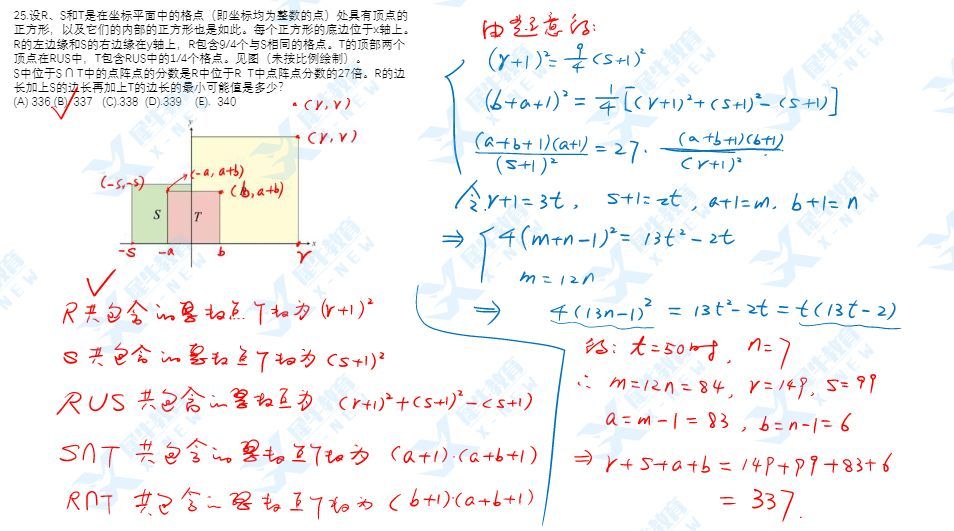 25.设R、S和T是在坐标平面中的格点（即坐标均为整数的点）处具有顶点的
正方形，以及它们的内部的正方形也是如此。每个正方形的底边位于x轴上。
R的左边缘和S的右边缘在y轴上，R包含9/4个与S相同的格点。T的顶部两个
顶点在RUS中，T包含RUS中的1/4个格点。见图（未按比例绘制）。
S中位于S∩T中的点阵点的分数是R中位于R T中点阵点分数的27倍。R的边
长加上S的边长再加上T的边长的最小可能值是多少?
(A) 336 (B) 337 (C).338 (D).339 (E). 340
(r, r)
y
(r, r)
(-s,-s)
(-a, a+b)
(b, a+b)
S
T
x
-s
-a
b
r
R共包含
个数为 (r+1)²
S共包含
个数为 (s+1)²
RUS 共包含
为 (r+1)²+(s+1)²-(s+1)
S∩T 共包含
个数为 (a+1)·(a+b+1)
R∩T 共包含
个数为 (b+1)·(a+b+1)
由题意得:
(r+1)²=9/4(s+1)²
(b+a+1)²=1/4[(r+1)²+(s+1)²-(s+1)]
(a+b+1)(a+1)/(s+1)²=27·(a+b+1)(b+1)/(r+1)²
令r+1=3t, s+1=2t, a+1=m, b+1=n
⇒ 4(m+n-1)²=13t²-2t
m=12n
⇒ 4(13n-1)²=13t²-2t=t(13t-2)
得: t=50时, n=7
∴ m=12n=84, r=149, s=99
a=m-1=83, b=n-1=6
⇒ r+s+a+b=149+99+83+6
=337.
犀牛教育
X-NEW